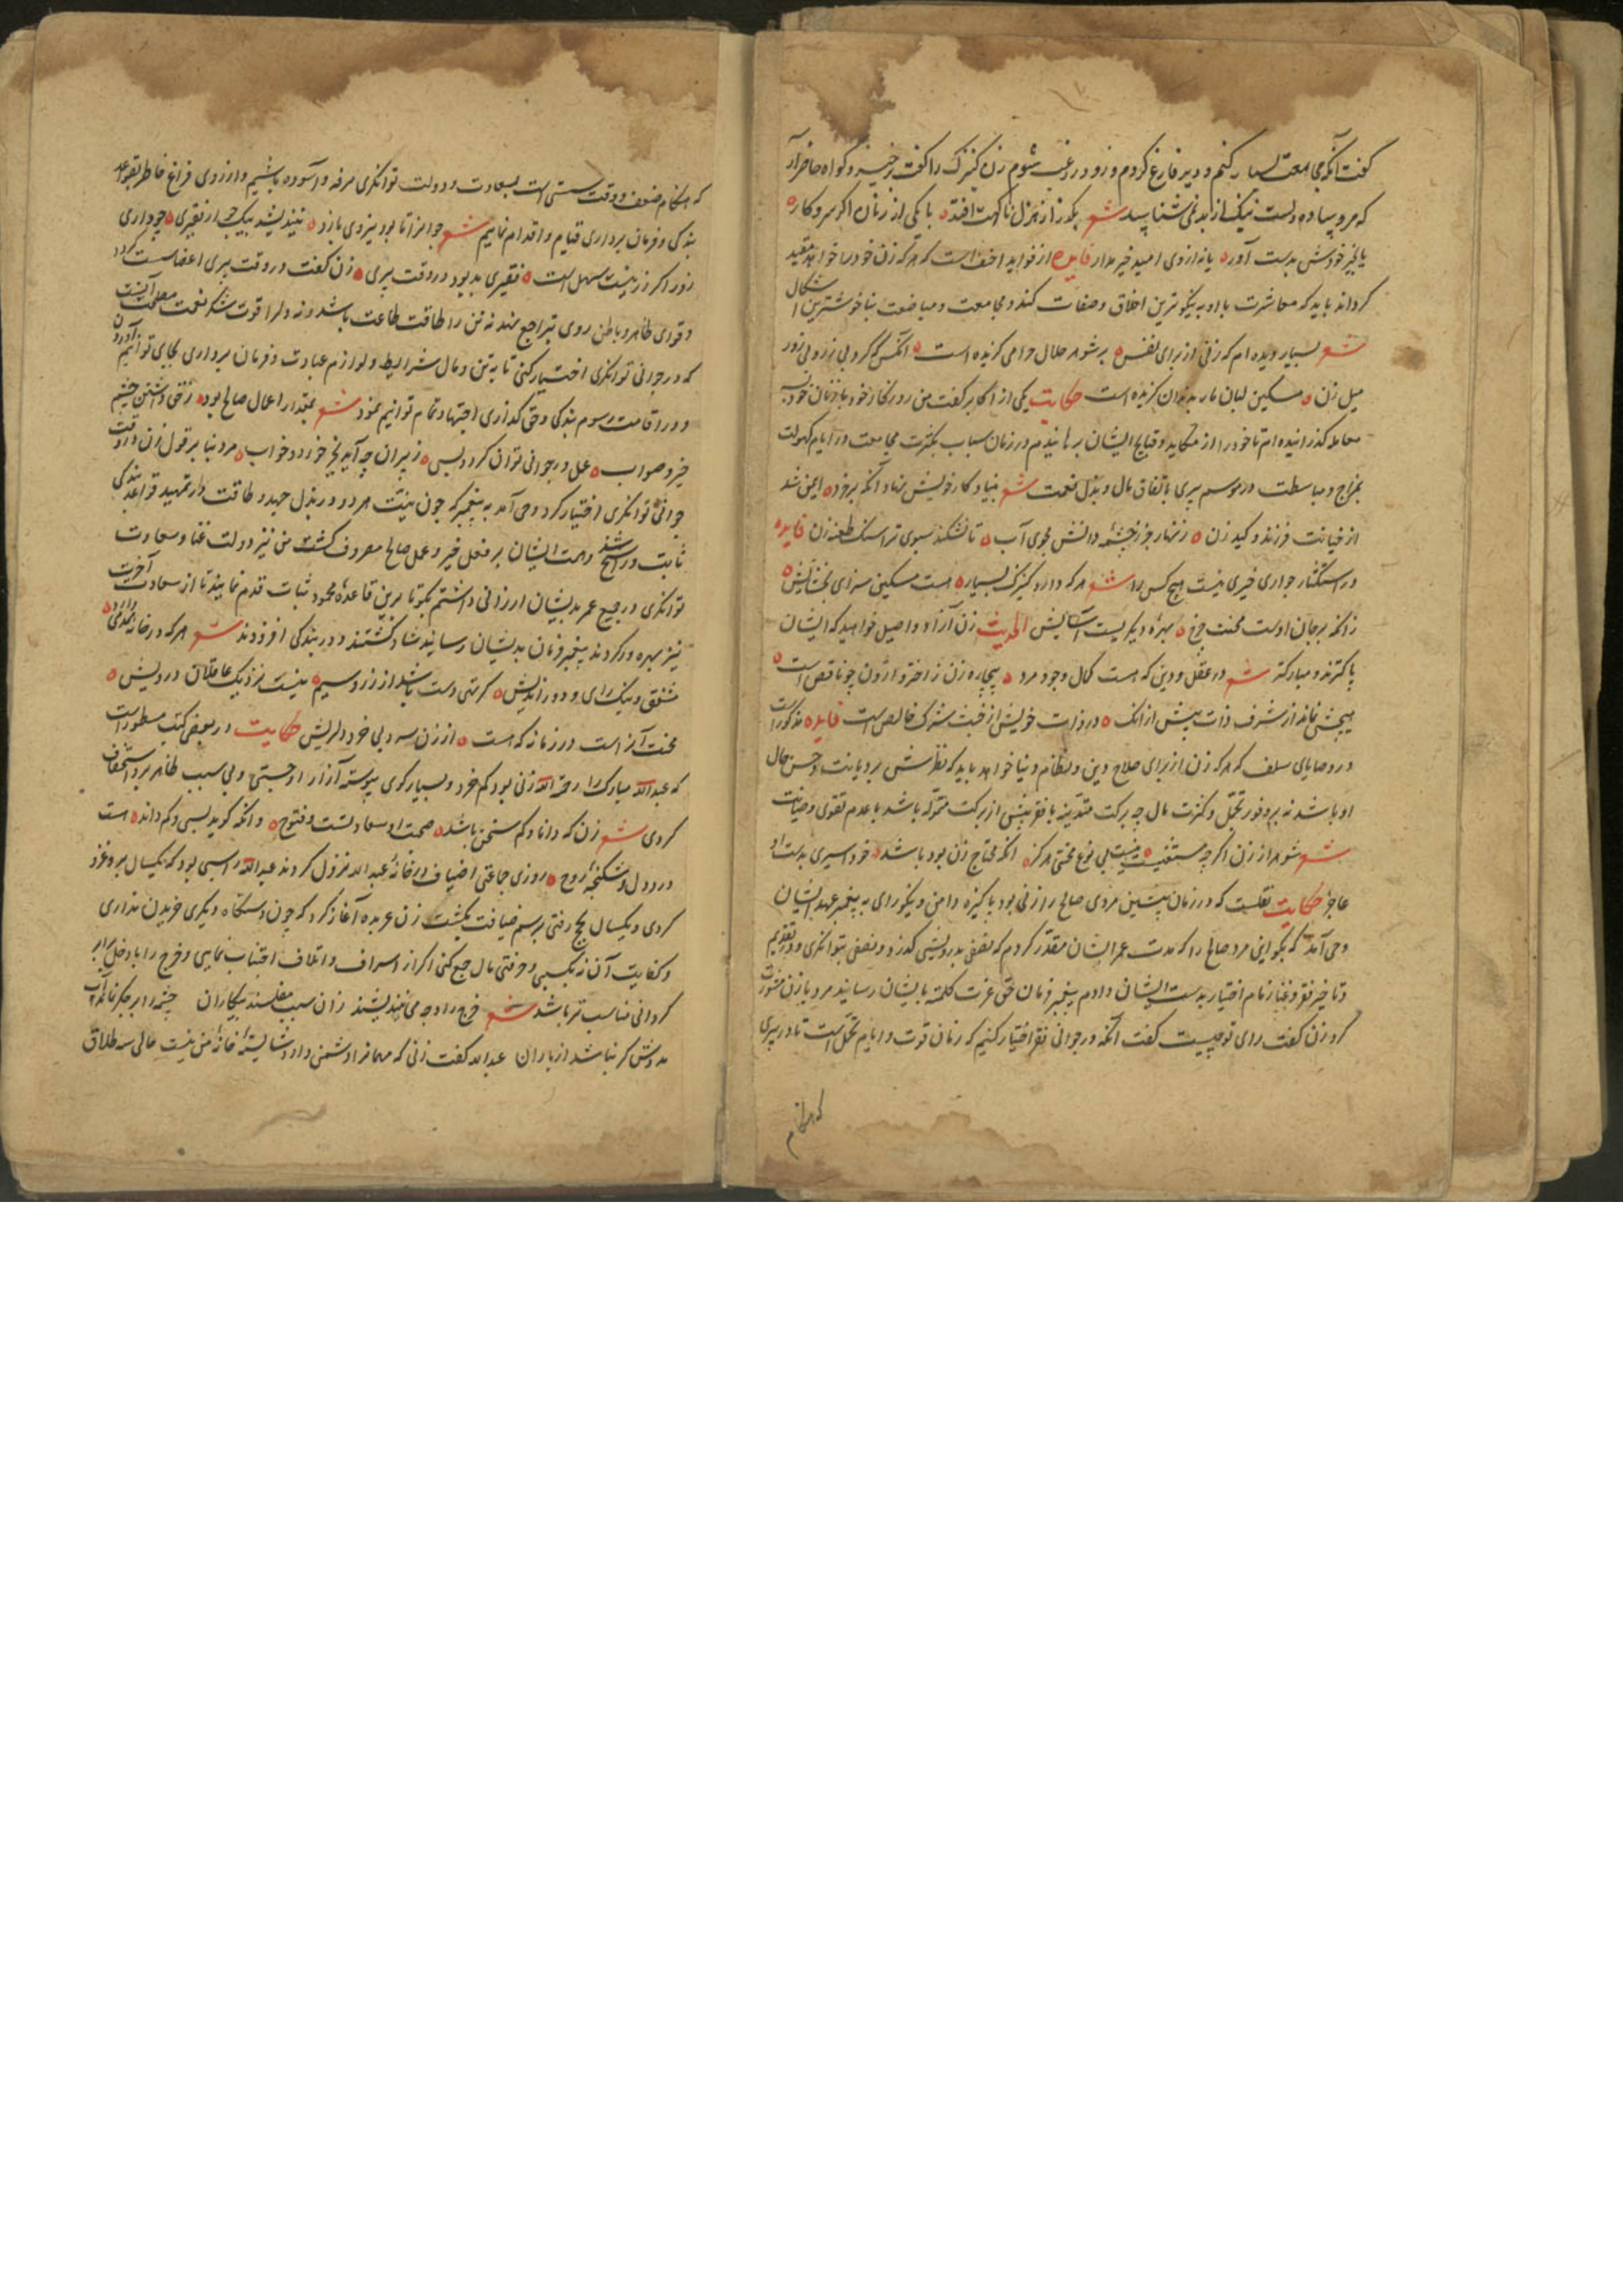 گفت آنکه مجامعت بسیار کنم و دیر فارغ کردم و زود در رغبت شوم زن کنیزک را گفت برخیز و گواه حاضر آر
که مرو پیاده دلست نیک از بد نمی شناسد شعر بگذر از هزل ناگهت افتد با یکی از زنان اگر سر و کار
یا بخیر خودش بدست آور یا نه از وی امید خیر مدار فایده از فواید اخف است که هر که زن خود را خواهد مقید
گرداند باید که معاشرت با او به نیکوترین اخلاق و صفات کند و مجامعت و مباضعت بناخوشترین اشکال
شعر بسیار دیده ام که زنی از برای نفس بر شوهر حلال حرامی گزیده است آنکس که کرد بی زر و بی زور
میل زن مسکین لبان مار بدندان گزیده است حکایت یکی از اکابر گفت من روزگار خود با زنان خود به
معامله گذرانیده ام تا خود را از مکاید و قبایح ایشان برهانیدم در زمان شباب بکثرت مجامعت و در ایام کهولت
بمزاح و مباسطت در موسم پیری باتفاق مال و بذل نعمت شعر بنیاد کار خویش نهاد آنکه بر خرد ایمن شد
از خیانت فرزند و کید زن زنهار جز ز چشمه دانش مجوی آب تا نشکند سبوی ترا سنگ طعنه زن فایده
در استکثار جواری خیری نیست هیچ کس را شعر هر که دارد کنیزک بسیار هست مسکین سزای بخشایش
زانکه بر جان اوست محنت چرخ بهره دیگریست آسایش الحدیث زن آزاد و اصیل خواهید که ایشان
پاکترند و مبارکتر شعر در عقل و دین که هست کمال وجود مرد بیچاره زن ز اختر وارون چو ناقص است
هیچش نمانه از شرف ذات بیش از آنک در ذات خویش از خبث شرک خالص است فایده مذکور است
در وصایای سلف که هر که زن از برای صلاح دین و نظام دنیا خواهد باید که نظرش بر دیانت و حسن حال
او باشد نه بر وفور تجمل و کثرت مال چه برکت متدینه با فقر بیش از برکت متموله باشد با عدم تقوی و صیانت
شعر شوهر از زن اگر چه مستغنیست نیست بی نوع محنتی هرگز آنکه محتاج زن بود باشد خود اسیری بدست او
عاجز حکایت نقلست که در زمان پیشین مردی صالح را زنی بود پاکیزه دامن و نیکو رای به پیغمبر عهد ایشان
وحی آمد که بگو این مرد صالح را که مدت عمر ایشان مقدر کردم که نصفی بدرویشی گذرد و نصفی بتوانگری و در تقدیم
و تاخیر فقر و غنا زمام اختیار بدست ایشان دادم پیغمبر فرمان حق عزت کلمته بایشان رسانید مرد با زن مشورت
کرد زن گفت رای تو چیست گفت آنکه در جوانی فقر اختیار کنیم که زمان قوت و ایام تحمل است تا در پیری
که هنگام
که هنگام ضعف و وقت سستی است بسعادت و دولت توانگری مرفه و آسوده باشیم و از روی فراغ خاطر بقواعد
بندگی و فرمان برداری قیام و اقدام نماییم شعر جوانرا تا بود نیروی بازو نیندیشد بیک جو از فقیری چو داری
زور اگر زر نیست سهل است فقیری بد بود در وقت پیری زن گفت در وقت پیری اعضا سست گردد
و قوای ظاهر و باطن روی بتراجع نهد نه تن را طاقت طاعت باشد و نه دل را قوت شکر نعمت مصلحت آنست
که در جوانی توانگری اختیار کنی تا به تن و مال شرایط و لوازم عبادت و فرمان برداری بجای توانیم آوردن
و در اقامت رسوم بندگی و حق گذاری اجتهاد تمام توانیم نمود شعر بمقدار اعمال صالح بود ز حق داشتن چشم
خیر و صواب عمل در جوانی توان کرد و بس ز پیران چه آید بجز خورد و خواب مرد بنا بر قول زن در وقت
جوانی توانگری اختیار کرد وحی آمد به پیغمبر که چون نیت هر دو در بذل جهد و طاقت و در تمهید قواعد بندگی
ثابت و راسخ شد و همت ایشان بر فعل خیر و عمل صالح معروف گشت من نیز دولت غنا و سعادت
توانگری در جمیع عمر بدیشان ارزانی داشتم بگو تا برین قاعده محمود ثبات قدم نمایند تا از سعادت آخرت
نیز بهره ور گردند پیغمبر فرمان بدیشان رسانید شاد گشتند و در بندگی افزودند شعر هر که در خانه همدمی دارد
مشفق و نیک رای و دور اندیش گر تهی دست باشد از زر و سیم نیست نزدیک عاقلان درویش
محنت آنراست در زمانه که هست از زن سه دبی خرد دلریش حکایت در بعضی کتب مسطور است
که عبدالله مبارک را رحمه الله زنی بود کم خرد و بسیار گوی پیوسته آزار او جستی و بی سبب ظاهر بر او استخفاف
کردی شعر زن که دانا و کم سخن باشد صحبت او سعادتست و فتوح وانکه گوید بسی و کم داند هست
درد دل و شکنجه روح روزی جماعتی اضیاف در خانه عبدالله نزول کردند عبدالله را رسمی بود که یکسال برو غزو
کردی و یکسال بحج رفتی برسم ضیافت بکشت زن عربده آغاز کرد که چون دستگاه دیگری خریدن نداری
و کفایت آن نه بکسبی و حرفتی مال جمع کنی اگر از اسراف و اتلاف اجتناب نمایی و خرج را با دخل برابر
گردانی مناسب تر باشد شعر خرج را وجه می نیندیشند زان سبب مفلسند بیکاران چشمه را بر جگر نماند آب
مددش گر نباشد از باران عبدالله گفت زنی که مهمانرا دشمن دارد شایسته خانه من نیست حالی سه طلاق